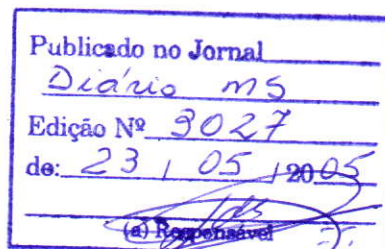 Publicado no Jornal
Diário MS
Edição Nº 3027
de: 23 / 05 / 2005
(a) Responsável